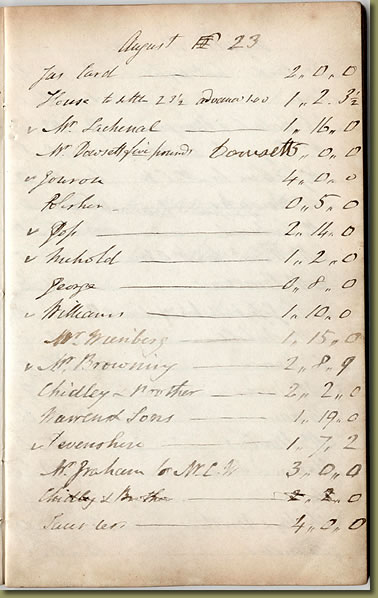 August 23
Jas Card 2 " 0 " 0
House to 23½ advance 1 " 2 " 3½
✓ Mr Lachenal 1 " 16 " 0
Mr Dowsett five pounds Dowsett 5 " 0 " 0
✓ 4 " 0 " 0
0 " 5 " 0
✓ 2 " 14 " 0
✓ 1 " 2 " 0
George 0 " 8 " 0
✓ Williams 1 " 10 " 0
Mr 1 " 15 " 0
✓ Mr Browning 2 " 8 " 9
Chidley & Brother 2 " 2 " 0
& Sons 1 " 19 " 0
✓ 1 " 7 " 2
Mr Graham for Mr C. W 3 " 0 " 0
Chidley & Brother 2 " 2 " 0
4 " 2 " 0